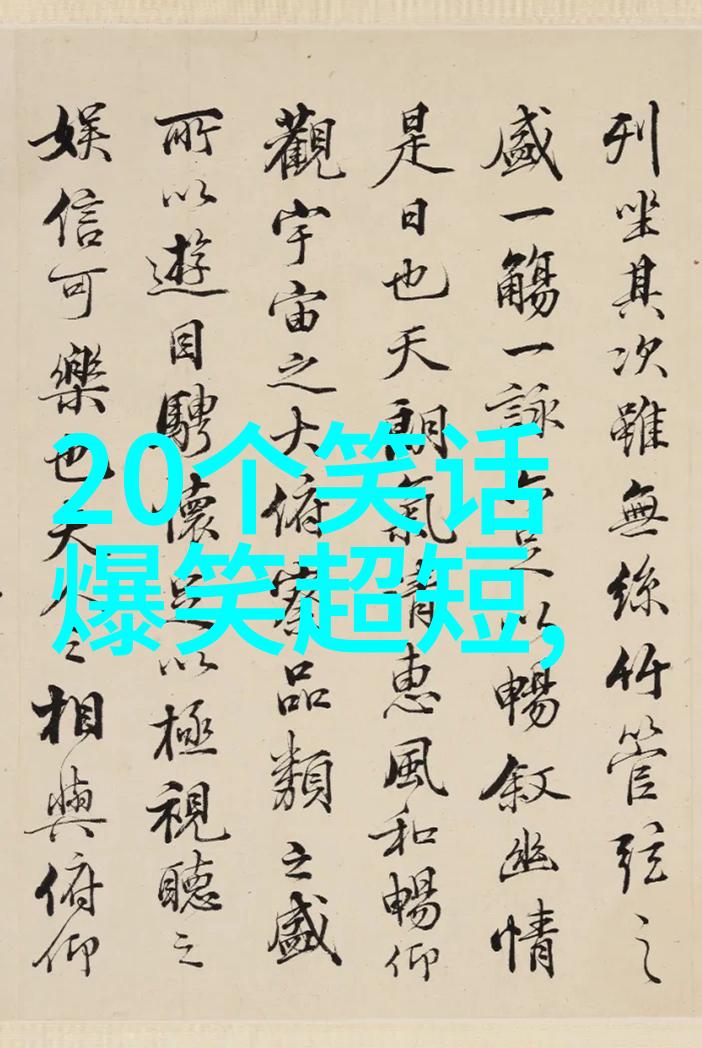 列坐其次雖無絲竹管弦之
盛一觴一詠亦足以暢叙幽情
是日也天朗氣清惠風和暢仰
觀宇宙之大俯察品類之盛
所以遊目騁懷足以極視聽之
娛信可樂也夫人之相與俯仰
20个笑话
爆笑超短,